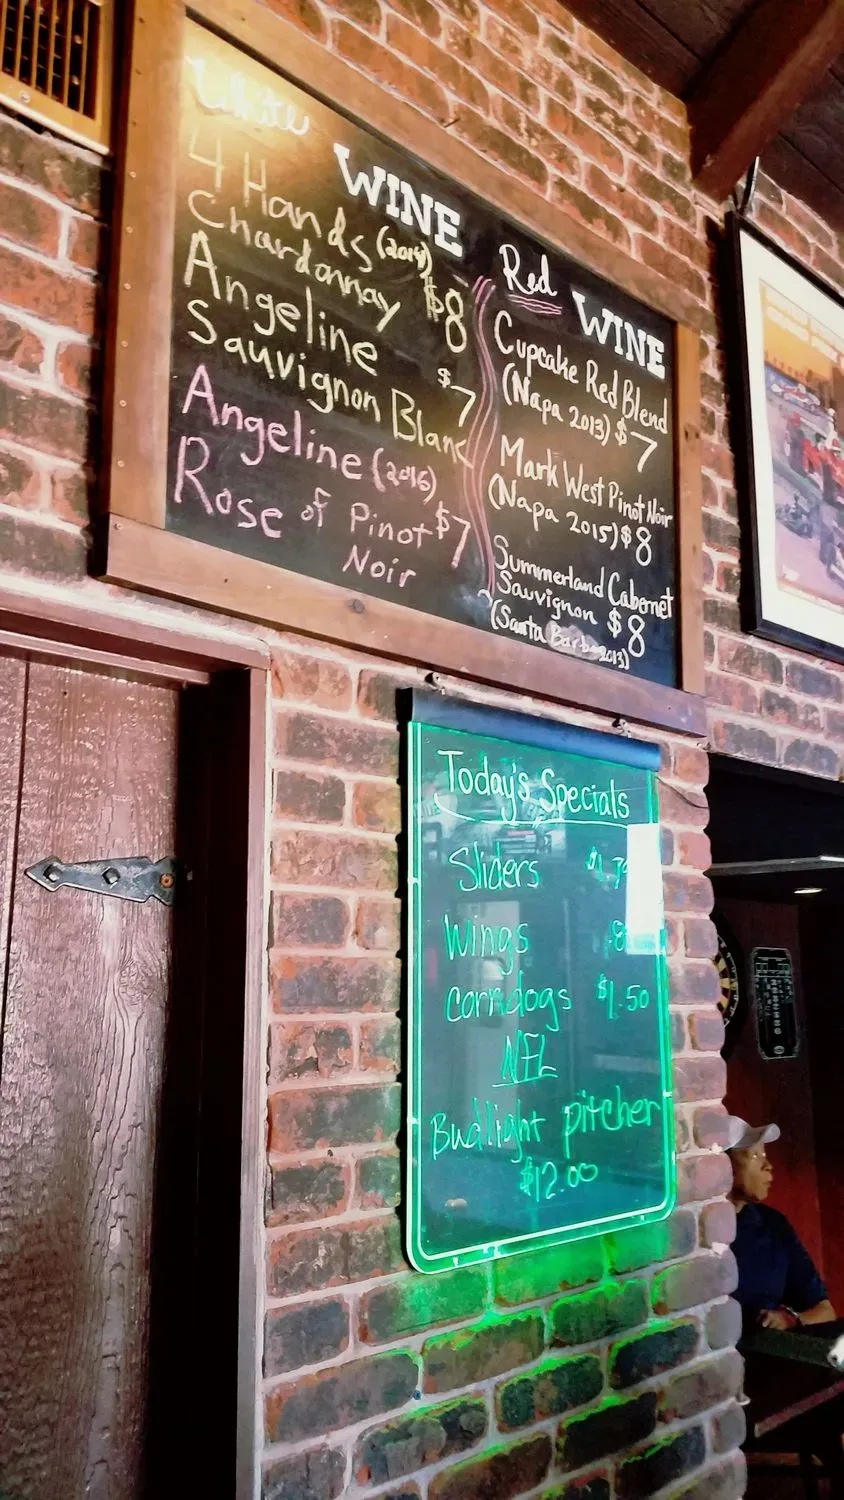 White
WINE
4 Hands (2014)
Chardonnay $8
Angeline
Sauvignon Blanc $7
Angeline (2016)
Rose of Pinot $7
Noir
Red
WINE
Cupcake Red Blend
(Napa 2013) $7
Mark West Pinot Noir
(Napa 2015) $8
Summerland Cabernet
Sauvignon $8
(Santa Barb 2013)
Today's Specials
Sliders
Wings
Corndogs $1.50
NFL
Budlight pitcher
$12.00